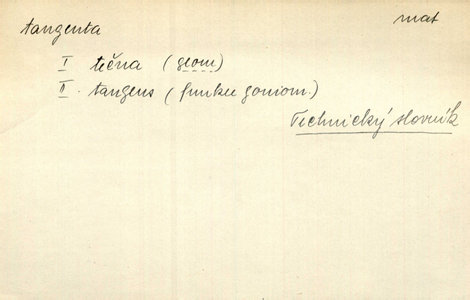 tangenta mat
I tečna (geom)
II. tangens (funkce goniom.)
Technický slovník